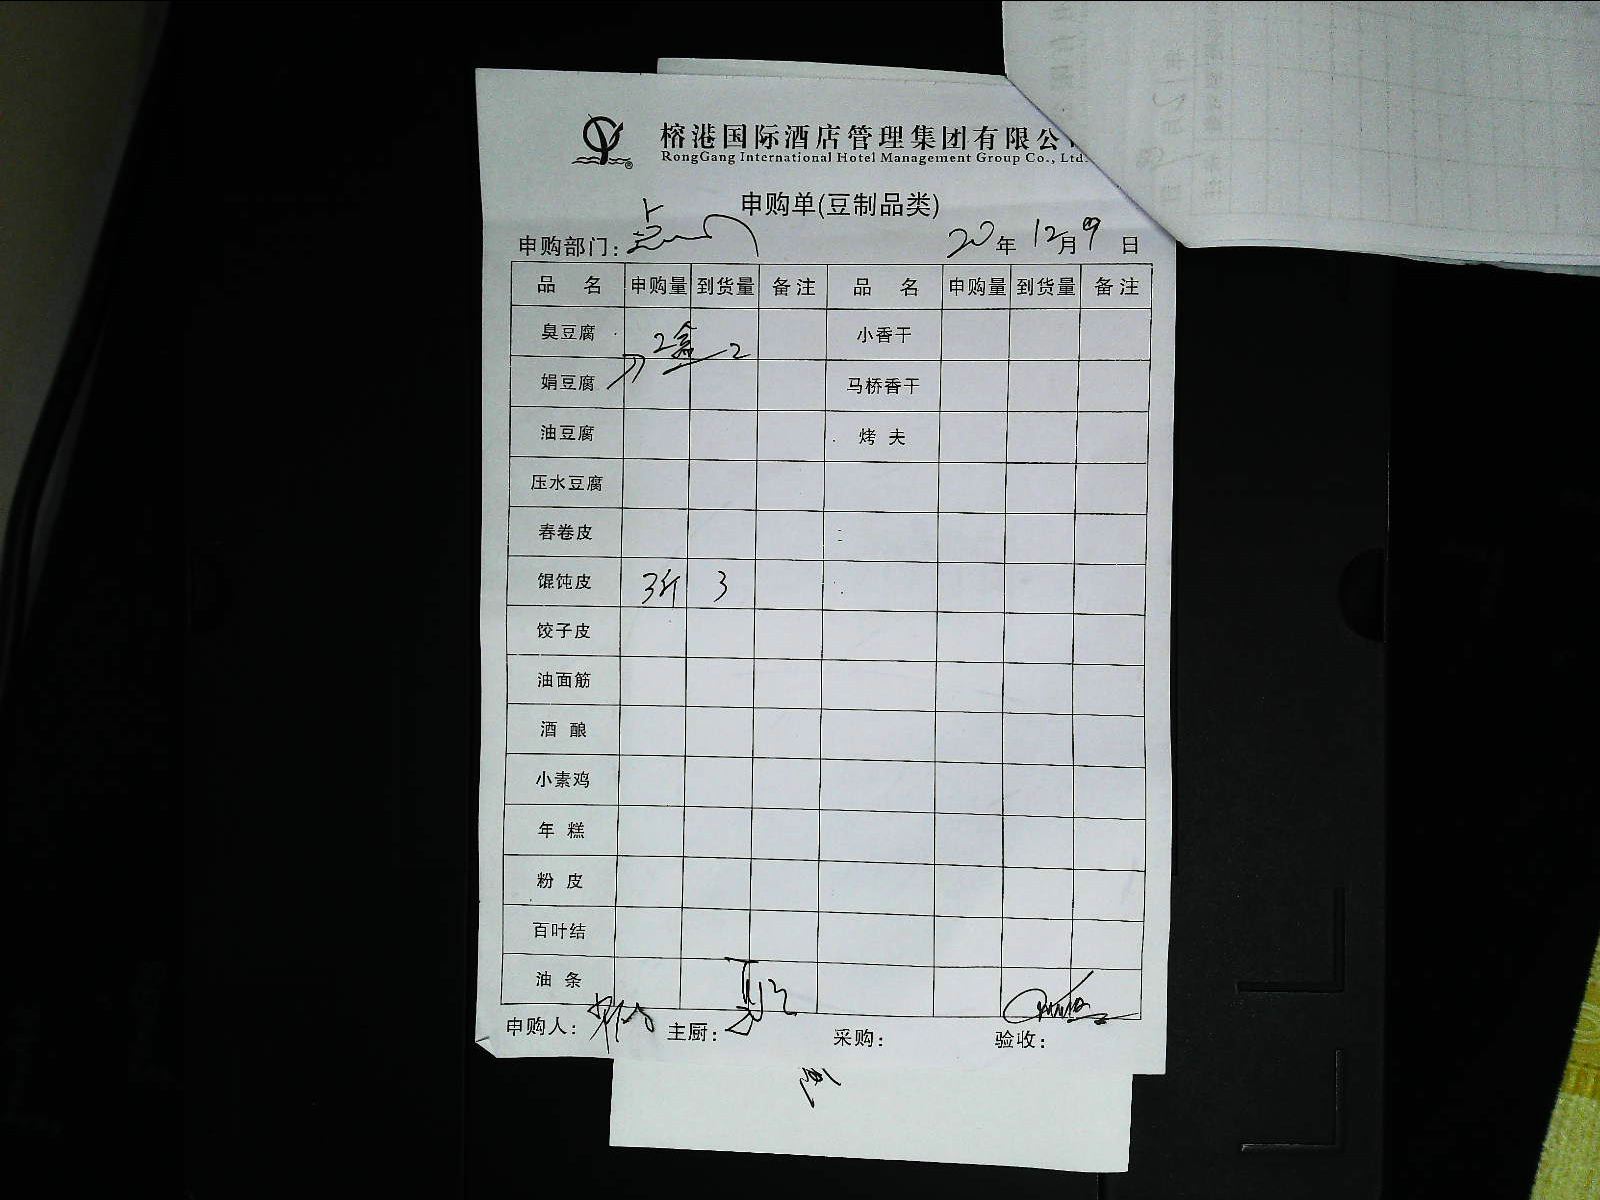 榕港国际酒店管理集团有限公
RongGang International Hotel Management Group Co., Ltd.
申购单(豆制品类)
申购部门: 20年 12月 9日
品 名 申购量 到货量 备注 品 名 申购量 到货量 备注
臭豆腐 2盒 2 小香干
娟豆腐 马桥香干
油豆腐 烤 夫
压水豆腐
春卷皮
馄饨皮 3斤 3
饺子皮
油面筋
酒 酿
小素鸡
年 糕
粉 皮
百叶结
油 条
申购人: 主厨: 采购: 验收: